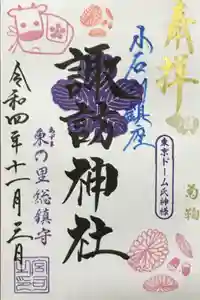 奉拝
小石川鎮座
東京ドーム氏神様
菊詣
諏訪神社
あずま
東の里総鎮守
令和四年十一月三日